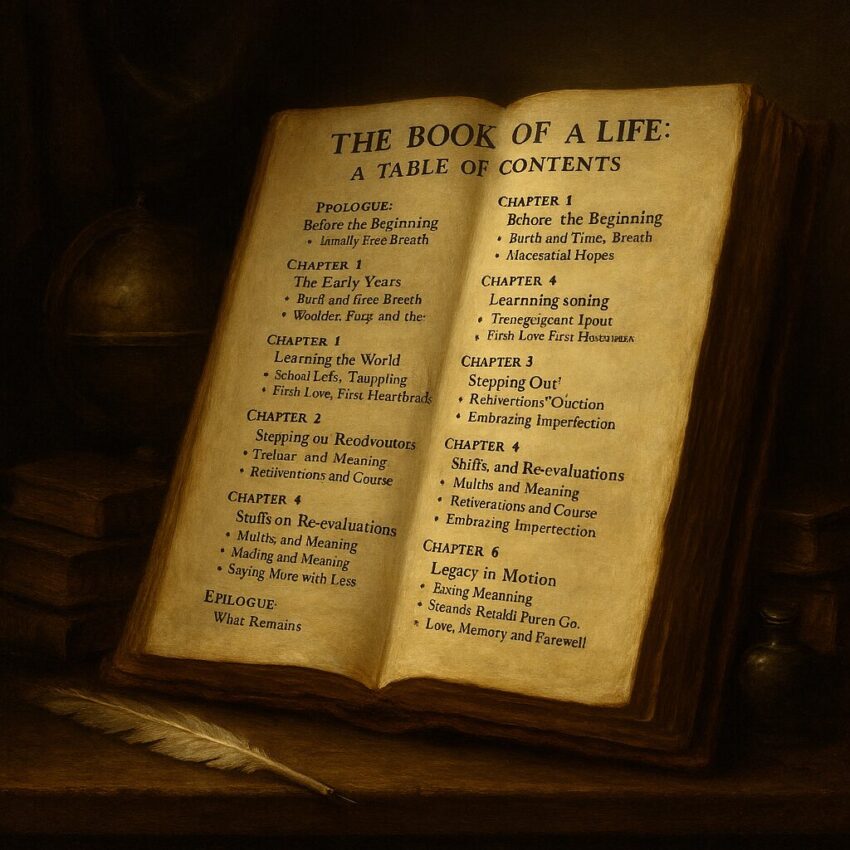 THE BOOK OF A LIFE:
A TABLE OF CONTENTS
PPOLOGUE:
Before the Beginning
• Lamally Free Breath
CHAPTER 1
The Early Years
• Burß and firee Breeth
• Woolder. Fuęz and the:
CHAPTER 1
Learning the World
• School Lefs, Tauppling
• Firsh Love, First Heartbrads
CHAPTER 2
Stepping ou Reodvoutors
• Treluar and Meaning
• Retiiventions and Course
CHAPTER 4
Stuffs on Re-evaluations
• Mulths; and Meaning
• Mading and Meaning
• Saying More with Less
EPILOGUE:
What Remains
CHAPTER 1
Bchore the Beginning
• Burth and Time, Breath
• Macesatial Hopes
CHAPTER 4
Learnning soning
• Trenegcigcant Ipout
• Firsh Love First
CHAPTER 3
Stepping Out'
• Rehivertions"Ouction
• Embrazing Imperfection
CHAPTER 4
Shiffs, and Re-evaluations
• Mulths and Meaning
• Retiverations and Course
• Embrazing Impertection
CHAPTER 6
Legacy in Motion
• Eaxing Meanning
• Steands Retaldi Puren Go.
• Love, Memory and Farewell